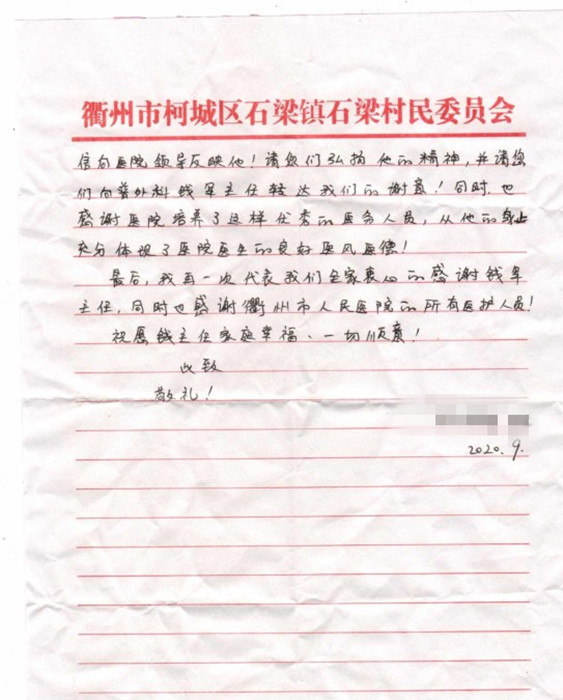 衢州市柯城区石梁镇石梁村民委员会
信向医院领导反映他！请您们弘扬他的精神，并请您
们向普外科钱军主任转达我们的谢意！同时，也
感谢医院培养了这样优秀的医务人员，从他的身上
充分体现了医院医生的良好医风医德！
最后，我再一次代表我们全家衷心的感谢钱军
主任，同时也感谢衢州市人民医院的所有医护人员！
祝愿钱主任家庭幸福、一切顺意！
此致
敬礼！
2020.9.